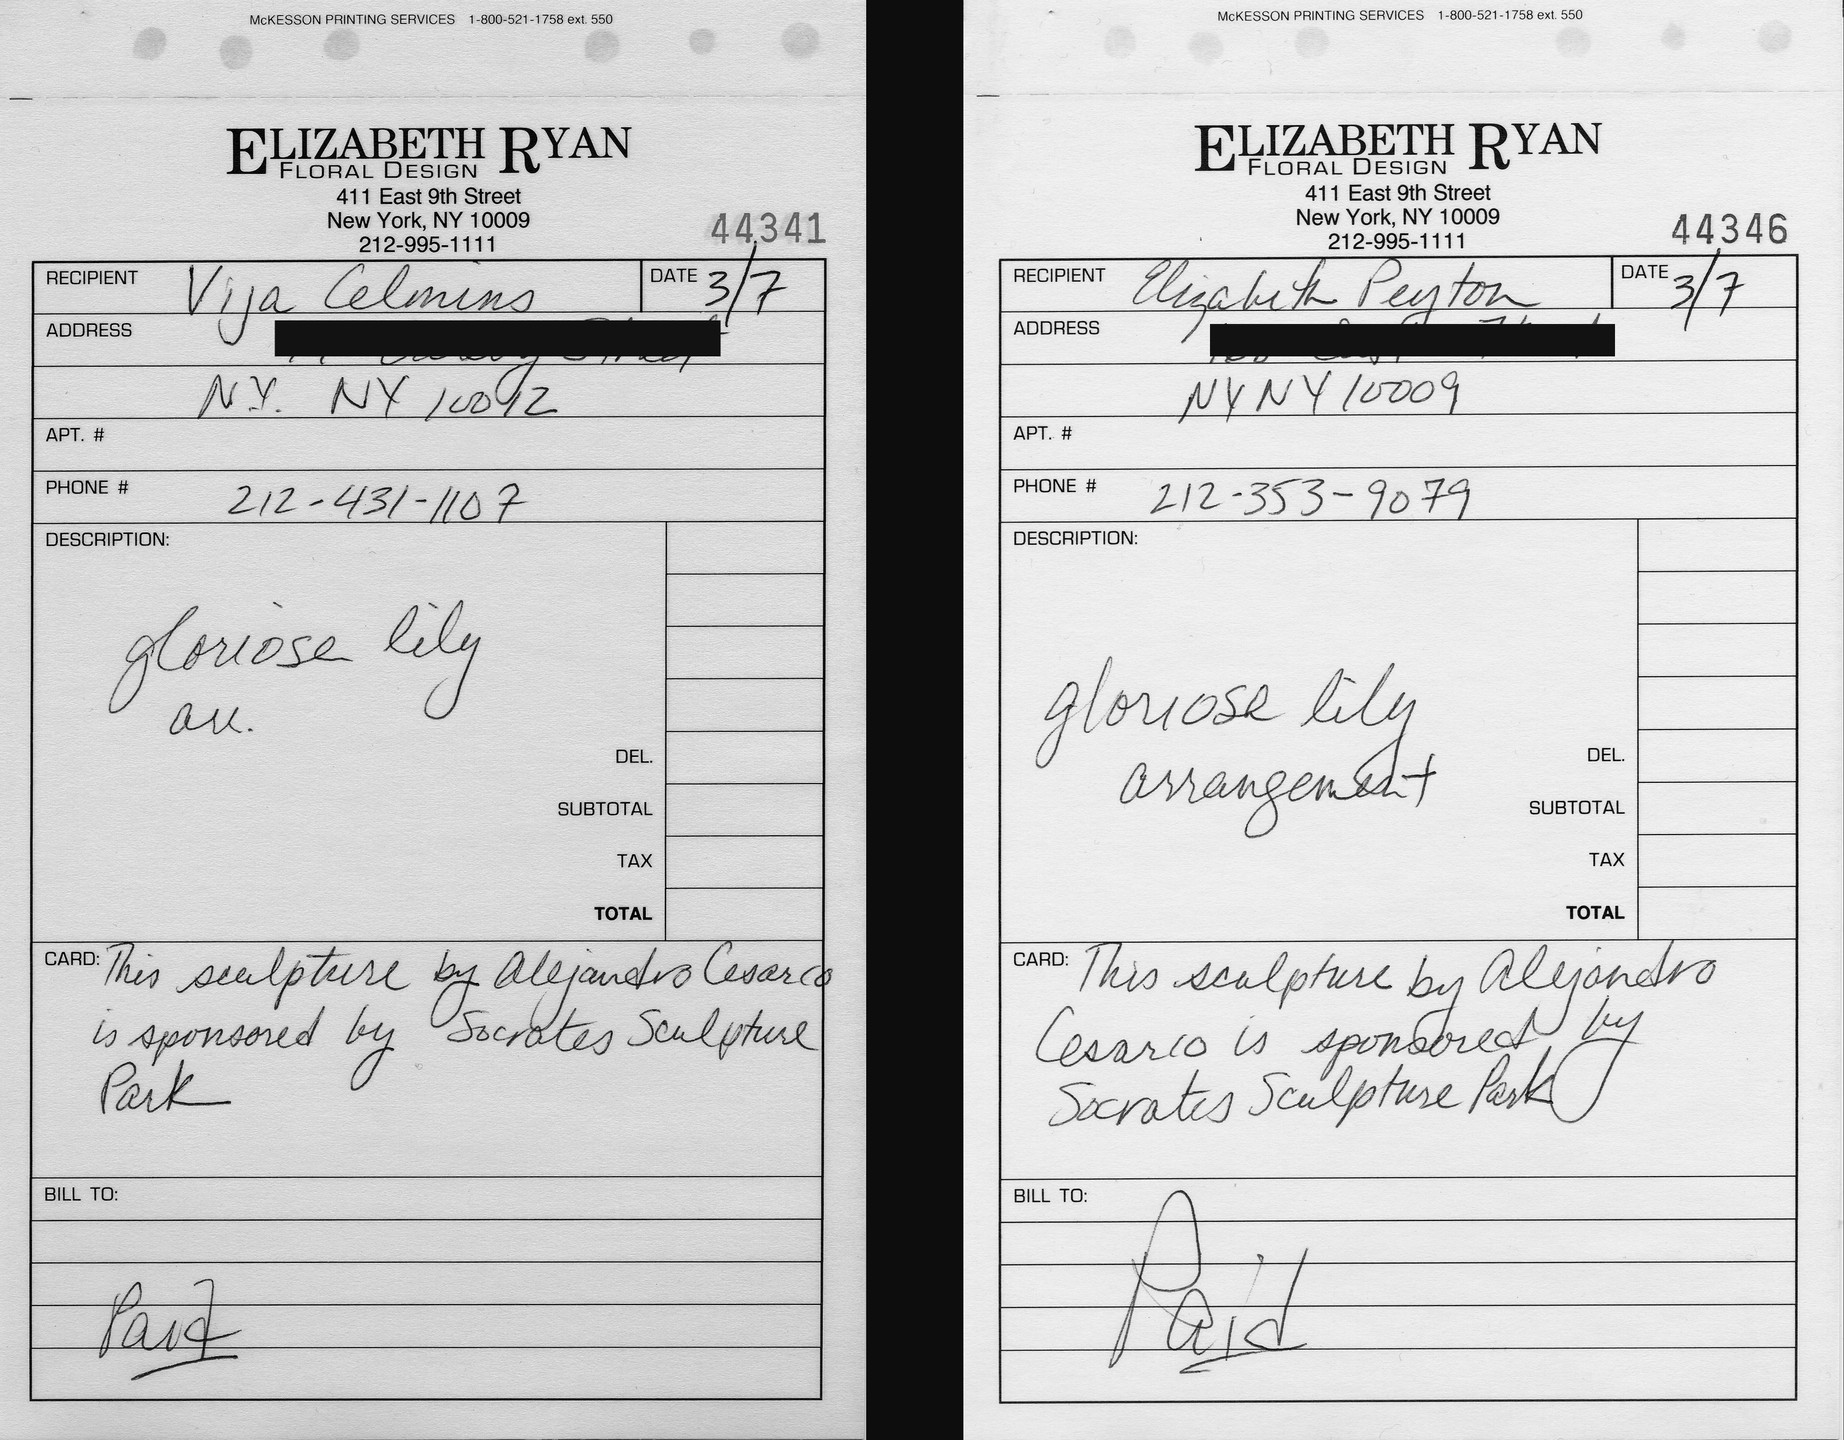 McKESSON PRINTING SERVICES 1-800-521-1758 ext. 550
ELIZABETH RYAN
FLORAL DESIGN
411 East 9th Street
New York, NY 10009
212-995-1111
44341
RECIPIENT Vija Celmins DATE 3/7
ADDRESS
N.Y. NY 10012
APT. #
PHONE # 212-431-1107
DESCRIPTION:
gloriose lily
arr.
DEL.
SUBTOTAL
TAX
TOTAL
CARD: This sculpture by Alejandro Cesarco
is sponsored by Socrates Sculpture
Park
BILL TO:
Paid
McKESSON PRINTING SERVICES 1-800-521-1758 ext. 550
ELIZABETH RYAN
FLORAL DESIGN
411 East 9th Street
New York, NY 10009
212-995-1111
44346
RECIPIENT Elizabeth Peyton DATE 3/7
ADDRESS
NY NY 10009
APT. #
PHONE # 212-353-9079
DESCRIPTION:
gloriose lily
arrangement
DEL.
SUBTOTAL
TAX
TOTAL
CARD: This sculpture by Alejandro
Cesarco is sponsored by
Socrates Sculpture Park
BILL TO:
Paid